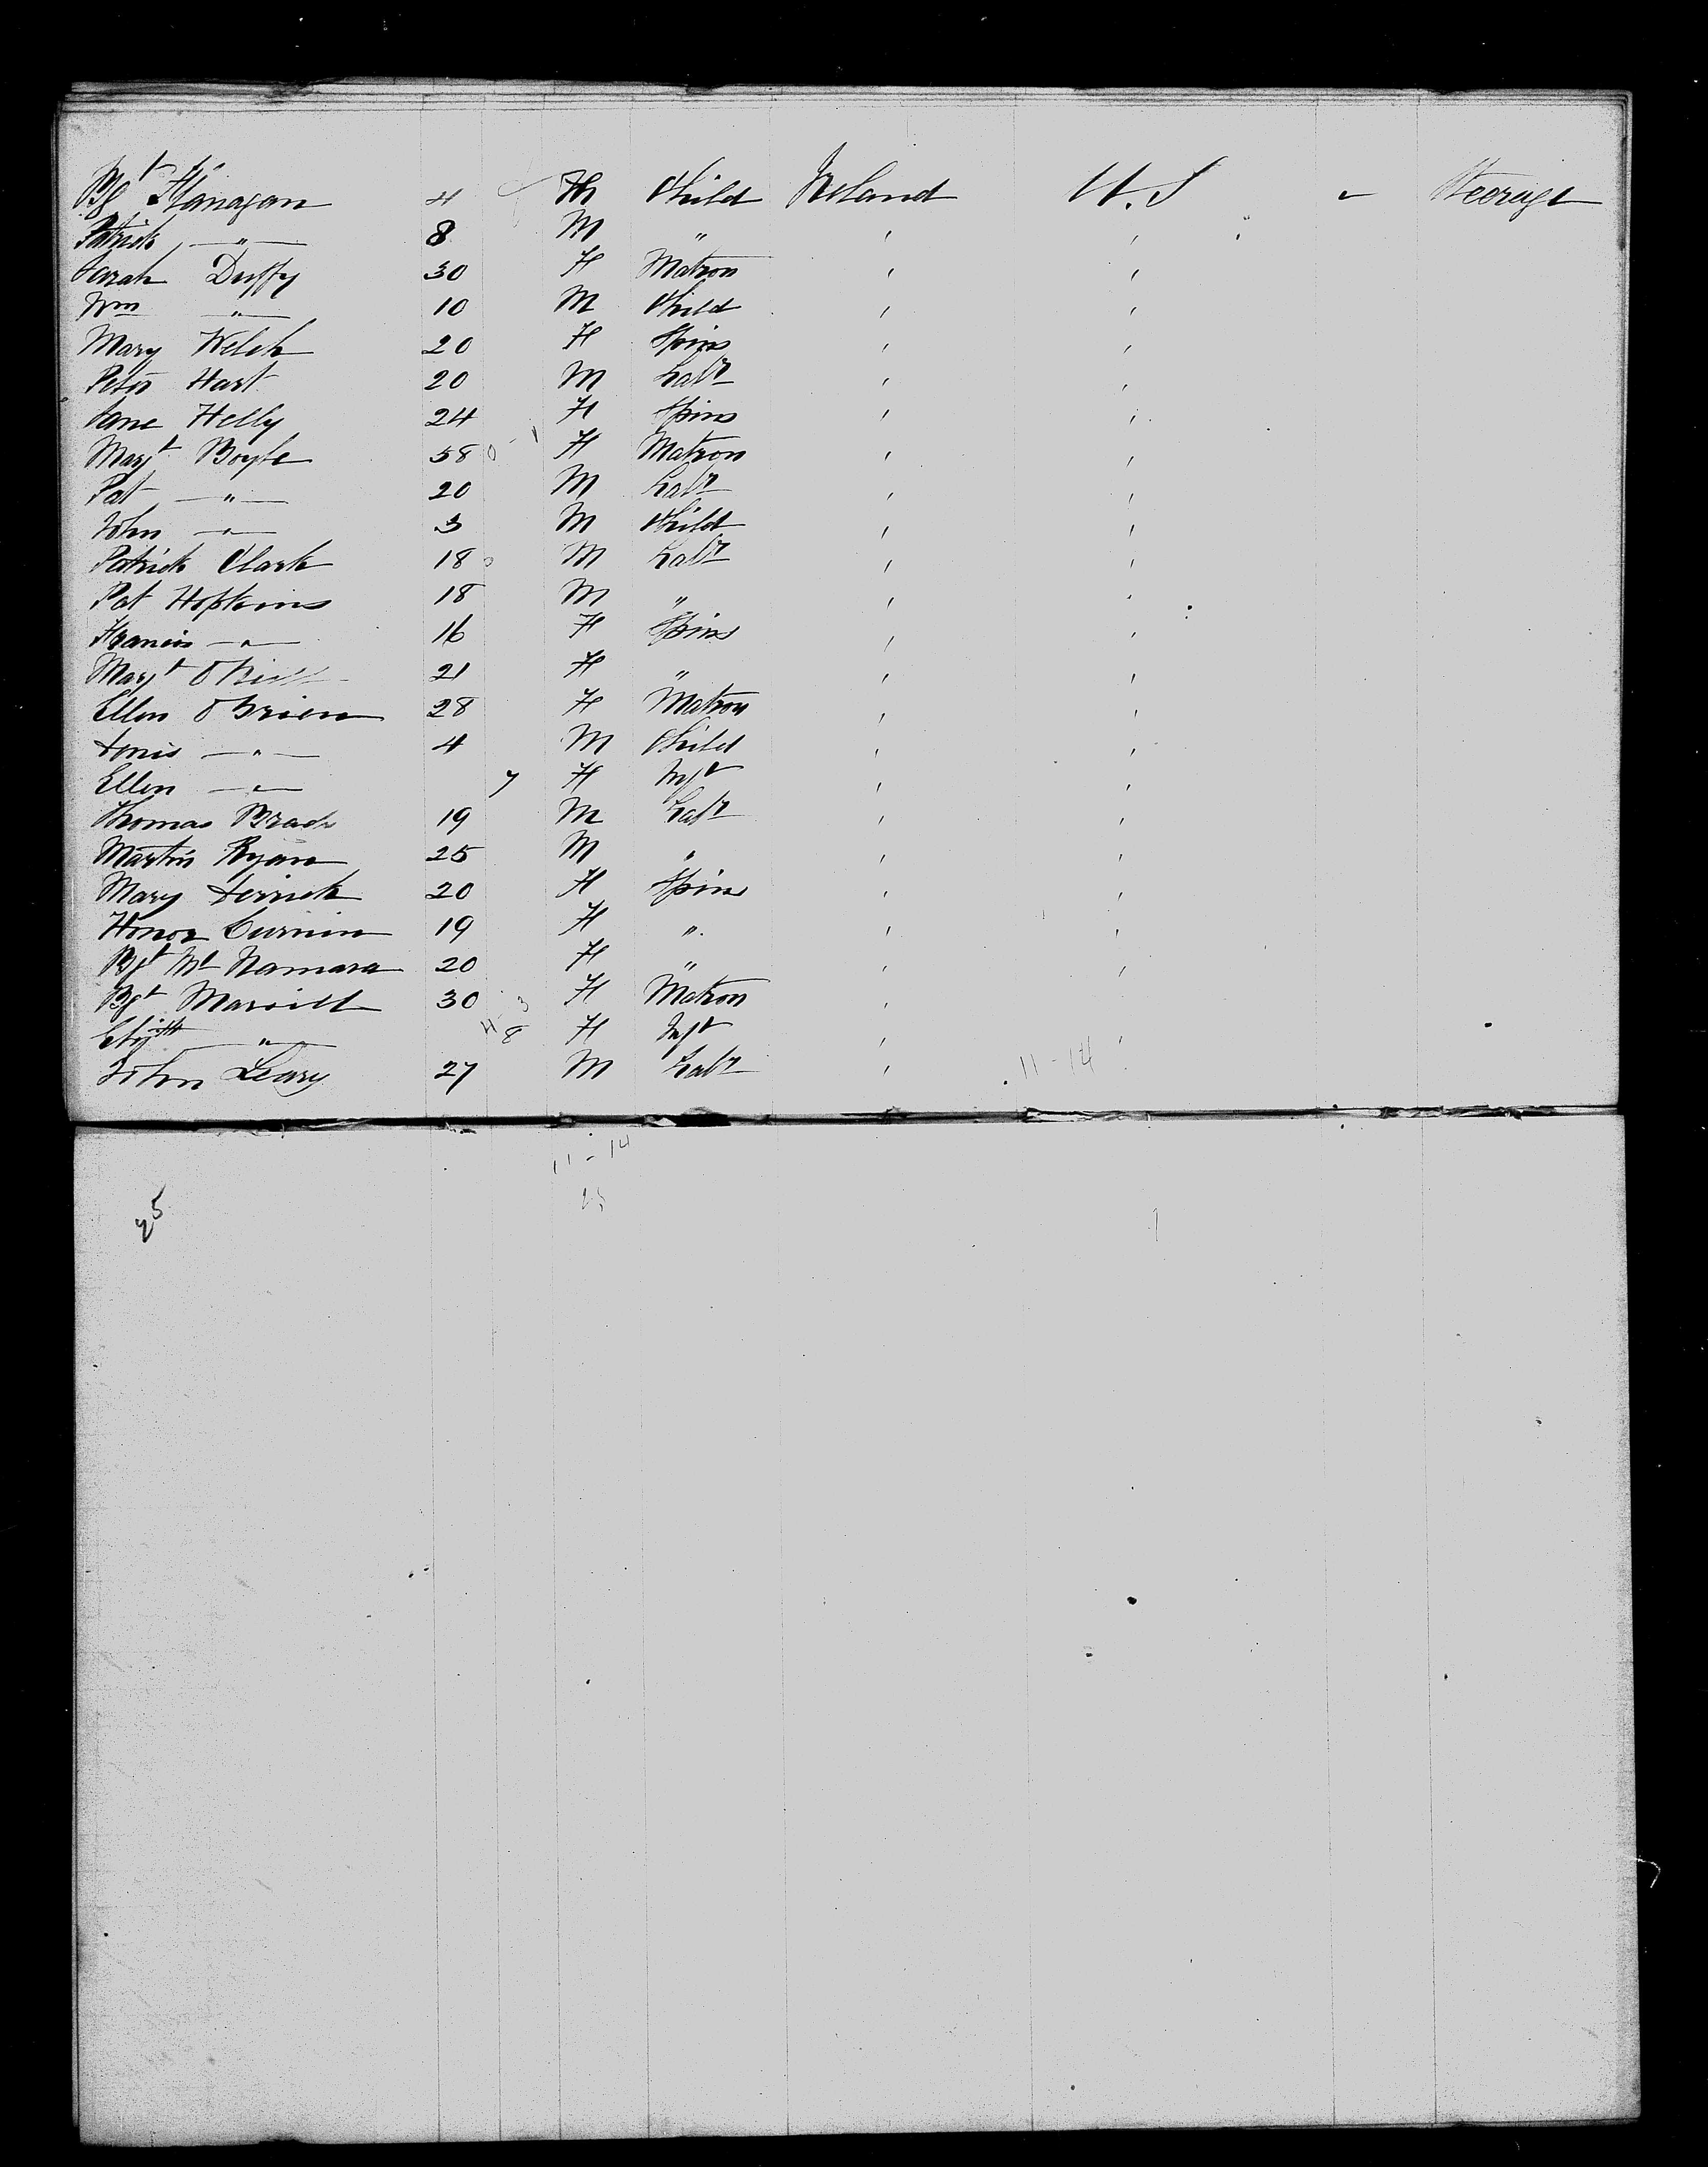 Bgt Flanagan 4 Child Ireland U.S " Steerage
Patrick — " — 8 M " ' '
Sarah Duffy 30 F Matron ' '
Wm — " — 10 M Child ' '
Mary Welch 20 F Spins ' '
Peter Hart 20 M Labr ' '
Jane Kelly 24 F Spins ' '
Margt Boyle 58 F Matron ' '
Pat — " — 20 M Labr ' '
John — " — 3 M Child ' '
Patrick Clark 18 M Labr ' '
Pat Hopkins 18 M " ' '
Francis — " — 16 F Spins ' '
Margt 21 F " ' '
Ellen OBrien 28 F Matron ' '
— " — 4 M Child ' '
Ellen — " — 7 F Inft ' '
Thomas 19 M Labr ' '
Martin Ryan 25 M " ' '
Mary Derrick 20 F Spins ' '
Honor 19 F " ' '
Bgt Mc Namara 20 F " ' '
Bgt 30 F Matron '
— " — 8 F Inft ' '
John Leary 27 M Labr ' 11-14
11-14
25
25